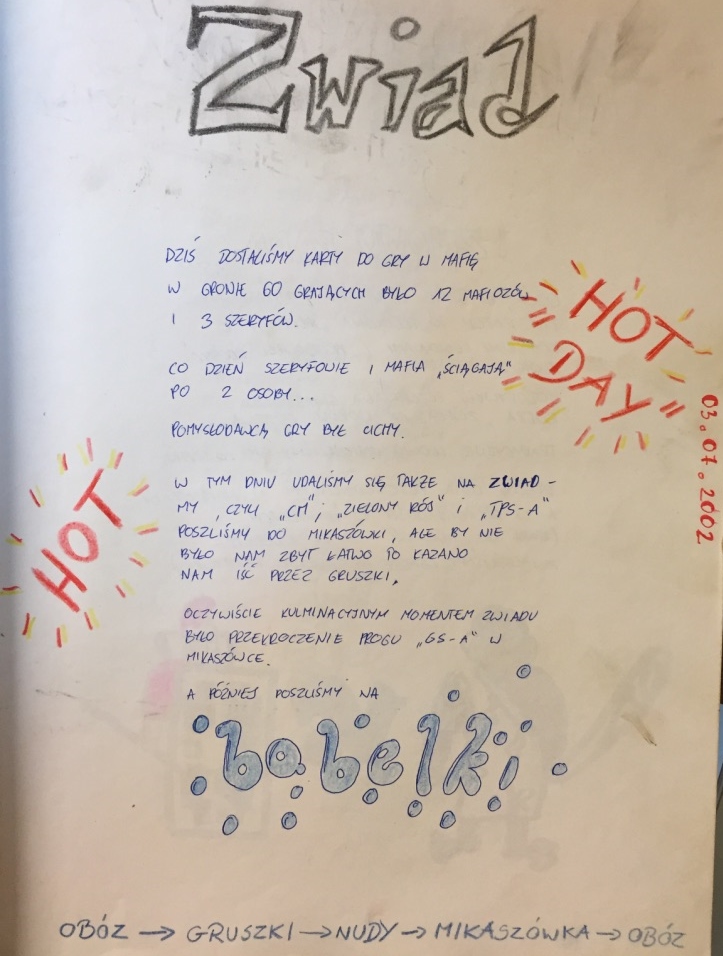 Zwiad
DZIŚ DOSTALIŚMY KARTY DO GRY W MAFIĘ
W GRONIE 60 GRAJĄCYCH BYŁO 12 MAFIOZÓW
I 3 SZERYFÓW.
HOT
DAY
CO DZIEŃ SZERYFOWIE I MAFIA „ŚCIĄGAJĄ"
PO 2 OSOBY...
03.07.2002
POMYSŁODAWCĄ GRY BYŁ CICHY.
HOT
W TYM DNIU UDALIŚMY SIĘ TAKŻE NA ZWIAD -
MY, CZYLI „CM"; „ZIELONY RÓJ" i „TPS-A"
POSZLIŚMY DO MIKASZÓWKI, ALE BY NIE
BYŁO NAM ZBYT ŁATWO TO KAZANO
NAM IŚĆ PRZEZ GRUSZKI.
OCZYWIŚCIE KULMINACYJNYM MOMENTEM ZWIADU
BYŁO PRZEKROCZENIE PROGU „GS-A" W
MIKASZÓWCE.
A PÓŹNIEJ POSZLIŚMY NA
bąbelki
OBÓZ → GRUSZKI → NUDY → MIKASZÓWKA → OBÓZ